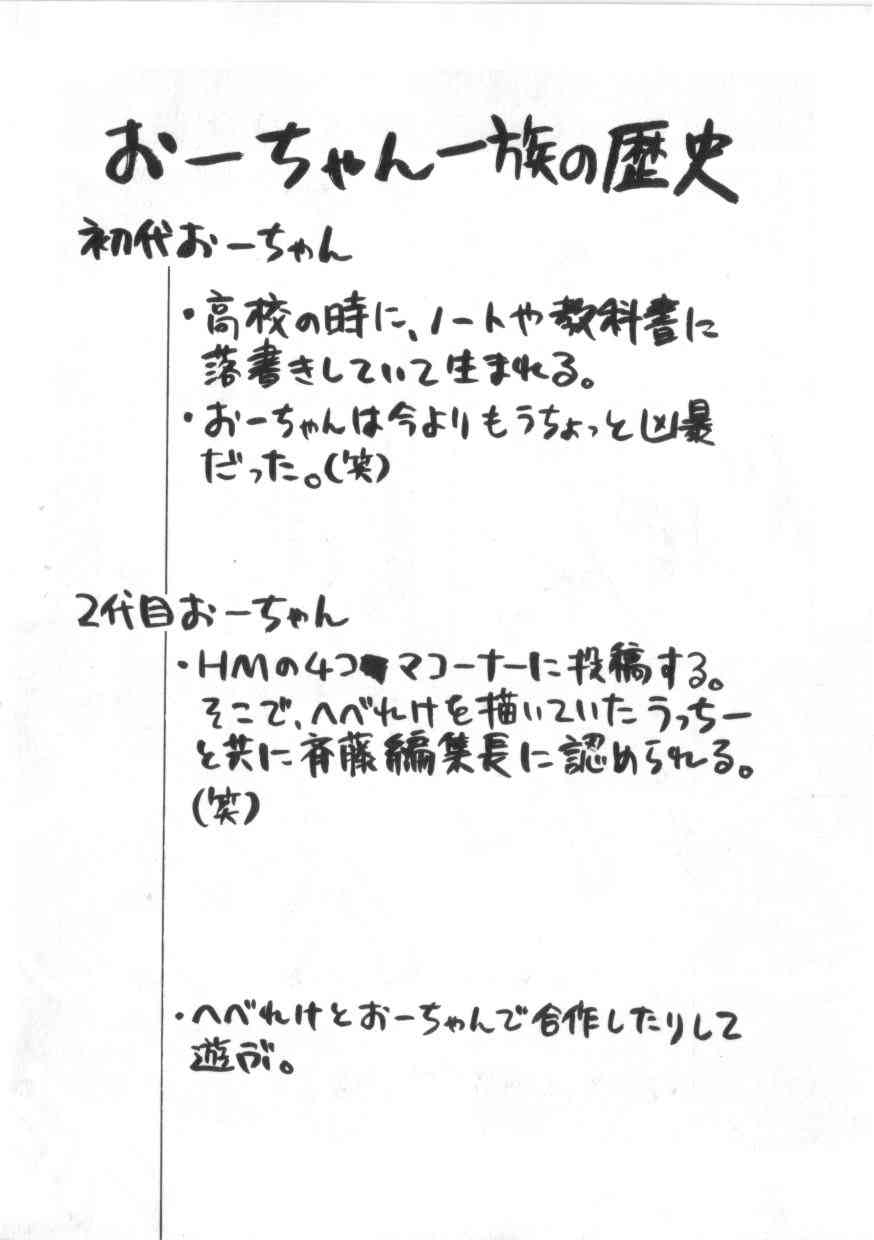 おーちゃん一族の歴史
初代おーちゃん
・高校の時に、ノートや教科書に
落書きしていて生まれる。
・おーちゃんは今よりもうちょっと凶暴
だった。(笑)
2代目おーちゃん
・HMの4コマコーナーに投稿する。
そこで、へべれけを描いていたうっちー
と共に斉藤編集長に認められる。
(笑)
・へべれけとおーちゃんで合作したりして
遊ぶ。